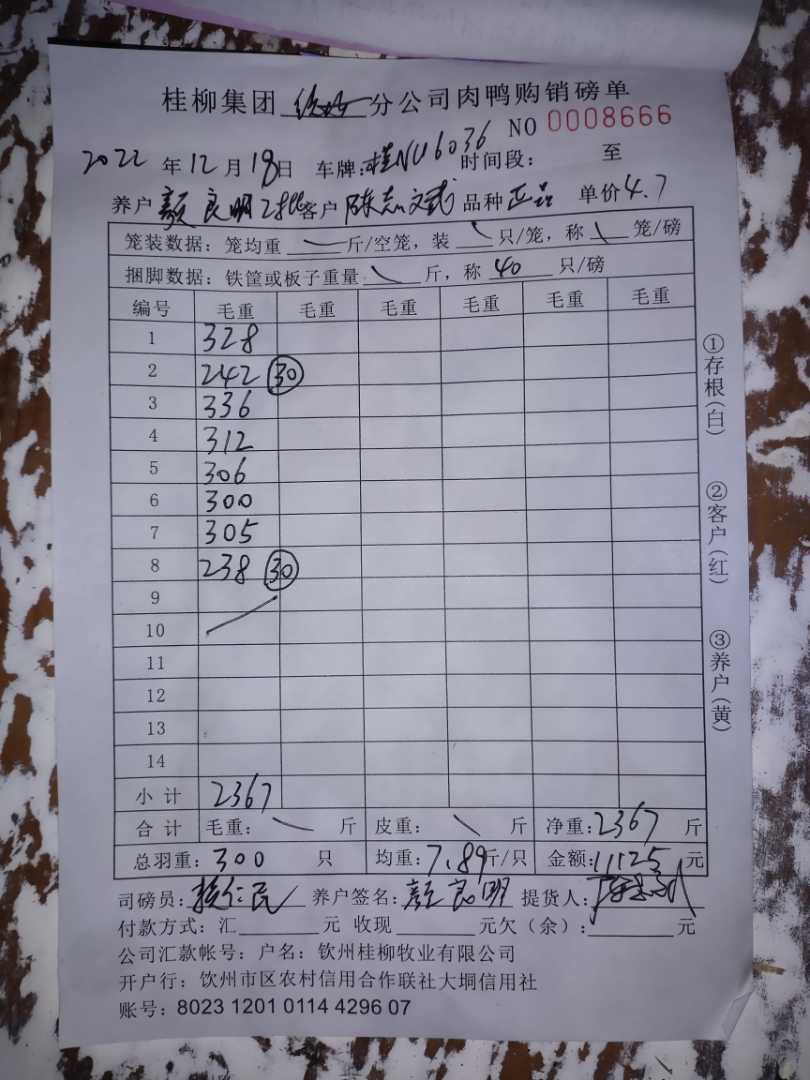 桂柳集团 分公司肉鸭购销磅单
NO 0008666
2022 年 12 月 18 日 车牌:桂NU6036 时间段: 至
养户 颜良明2批 客户 陈志文武 品种 正品 单价 4.7
笼装数据: 笼均重 斤/空笼, 装 只/笼, 称 笼/磅
捆脚数据: 铁筐或板子重量 斤, 称 40 只/磅
编号 毛重 毛重 毛重 毛重 毛重 毛重
1 328
2 242 30
3 336
4 312
5 306
6 300
7 305
8 238 30
9
10
11
12
13
14
小计 2367
合计 毛重: 斤 皮重: 斤 净重: 2367 斤
总羽重: 300 只 均重: 7.89 斤/只 金额: 11125 元
司磅员: 养户签名: 颜良明 提货人:
付款方式: 汇 元 收现 元欠(余): 元
公司汇款帐号: 户名: 钦州桂柳牧业有限公司
开户行: 饮州市区农村信用合作联社大垌信用社
账号: 8023 1201 0114 4296 07
①存根(白)
②客户(红)
③养户(黄)